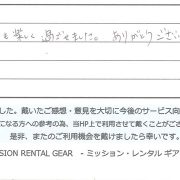 を楽しく過ごせました。ありがとうござい
した。戴いたご感想・意見を大切に今後のサービス向
になる方への参考の為、当HP上で利用させて戴くことがござ
是非、またのご利用機会を戴けましたら幸いです。
SION RENTAL GEAR - ミッション・レンタル ギア